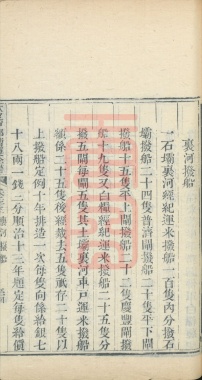 裏河撥船
一石壩裏河經紀運米撥船一百隻內分撥石
壩撥船二十四隻普濟閘撥船二十隻平下閘
撥船十五隻平上閘撥船二十二隻慶豐閘撥
船十九隻又白糧經紀運米撥船二十五隻分
撥五閘每閘五隻其土壩裏河車戶運米撥船
額係二十五隻後經裁去五隻祗存二十隻以
上撥船定例十年排造一次每隻向係給銀七
十八兩一錢二分順治十三年題定每隻給價